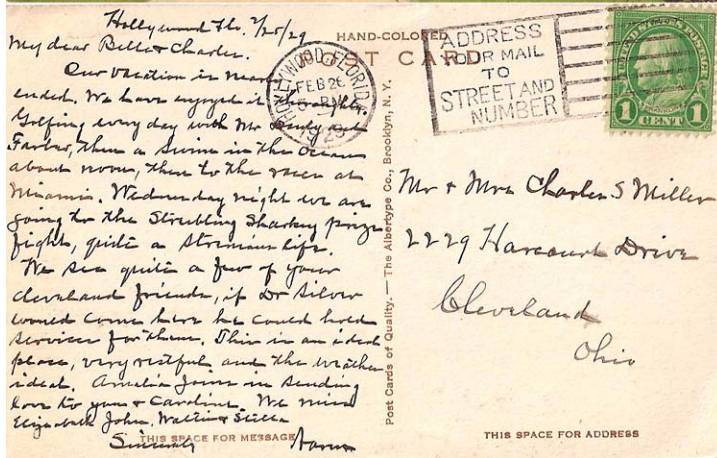 Hollywood Fla. 2/25/29
My dear Belle & Charlie.
Our vacation is nearly
ended. We have enjoyed it
Golfing every day with Mr
Farber, then a swim in the Ocean
about noon, then to the races at
Miami. Wednesday night we are
going to the Stribling Sharkey prize
fight, quite a strenuous life.
We see quite a few of your
Cleveland friends, if Dr Silver
would come here he could hold
services for them. This is an ideal
place, very restful and the weather
ideal. Amelia joins in sending
love to you & Caroline. We miss
Elizabeth John, Walter & Stella
Sincerely Aaron
THIS SPACE FOR MESSAGE
HAND-COLORED
POST CARD
HOLLYWOOD FLORIDA
FEB 26
5 PM
1929
ADDRESS
YOUR MAIL
TO
STREET AND
NUMBER
UNITED STATES POSTAGE
FRANKLIN
1 CENT 1
Post Cards of Quality. — The Albertype Co., Brooklyn, N. Y.
Mr & Mrs Charles S Miller
2229 Harcourt Drive
Cleveland
Ohio
THIS SPACE FOR ADDRESS